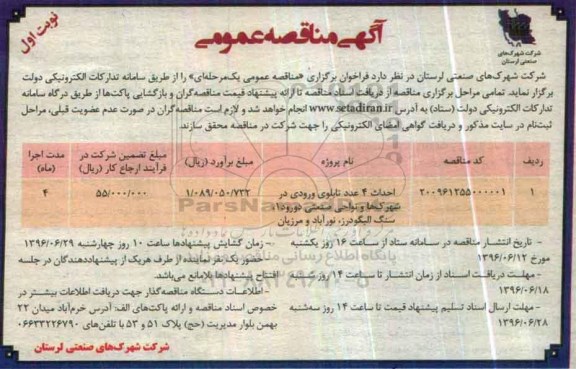 نوبت اول
آگهی مناقصه عمومی
شرکت شهرک‌های
صنعتی لرستان
شرکت شهرک‌های صنعتی لرستان در نظر دارد فراخوان برگزاری «مناقصه عمومی یک‌مرحله‌ای» را از طریق سامانه تدارکات الکترونیکی دولت
برگزار نماید. تمامی مراحل برگزاری مناقصه از دریافت اسناد مناقصه تا ارائه پیشنهاد قیمت مناقصه‌گران و بازگشایی پاکت‌ها از طریق درگاه سامانه
تدارکات الکترونیکی دولت (ستاد) به آدرس www.setadiran.ir انجام خواهد شد و لازم است مناقصه‌گران در صورت عدم عضویت قبلی، مراحل
ثبت‌نام در سایت مذکور و دریافت گواهی امضای الکترونیکی را جهت شرکت در مناقصه محقق سازند.
ردیف کد مناقصه نام پروژه مبلغ برآورد (ریال) مبلغ تضمین شرکت در فرآیند ارجاع کار (ریال) مدت اجرا (ماه)
۱ ۲۰۰۹۶۱۲۵۵۰۰۰۰۰۱ احداث ۴ عدد تابلوی ورودی در ۱/۰۸۹/۰۵۰/۷۲۲ ۵۵/۰۰۰/۰۰۰ ۴
شهرک‌ها و نواحی صنعتی دورود۲،
سنگ الیگودرز، نورآباد و مرزیان
- تاریخ انتشار مناقصه در سامانه ستاد از ساعت ۱۶ روز یکشنبه
مورخ ۱۳۹۶/۰۶/۱۲
- مهلت دریافت اسناد از زمان انتشار تا ساعت ۱۴ روز
۱۳۹۶/۰۶/۱۸
- مهلت ارسال اسناد تسلیم پیشنهاد قیمت تا ساعت ۱۴ روز سه‌شنبه
۱۳۹۶/۰۶/۲۸
- زمان گشایش پیشنهادها ساعت ۱۰ روز چهارشنبه ۱۳۹۶/۰۶/۲۹
حضور یک نفر نماینده از طرف هریک از پیشنهاددهندگان در جلسه
افتتاح پیشنهادها بلامانع می‌باشد.
- اطلاعات دستگاه مناقصه‌گذار جهت دریافت اطلاعات بیشتر در
خصوص اسناد مناقصه و ارائه پاکت‌های الف: آدرس خرم‌آباد میدان ۲۲
بهمن بلوار مدیریت (حج) پلاک ۵۱ و ۵۳ با تلفن‌های ۰۶۶۳۳۲۲۶۷۹۰
شرکت شهرک‌های صنعتی لرستان